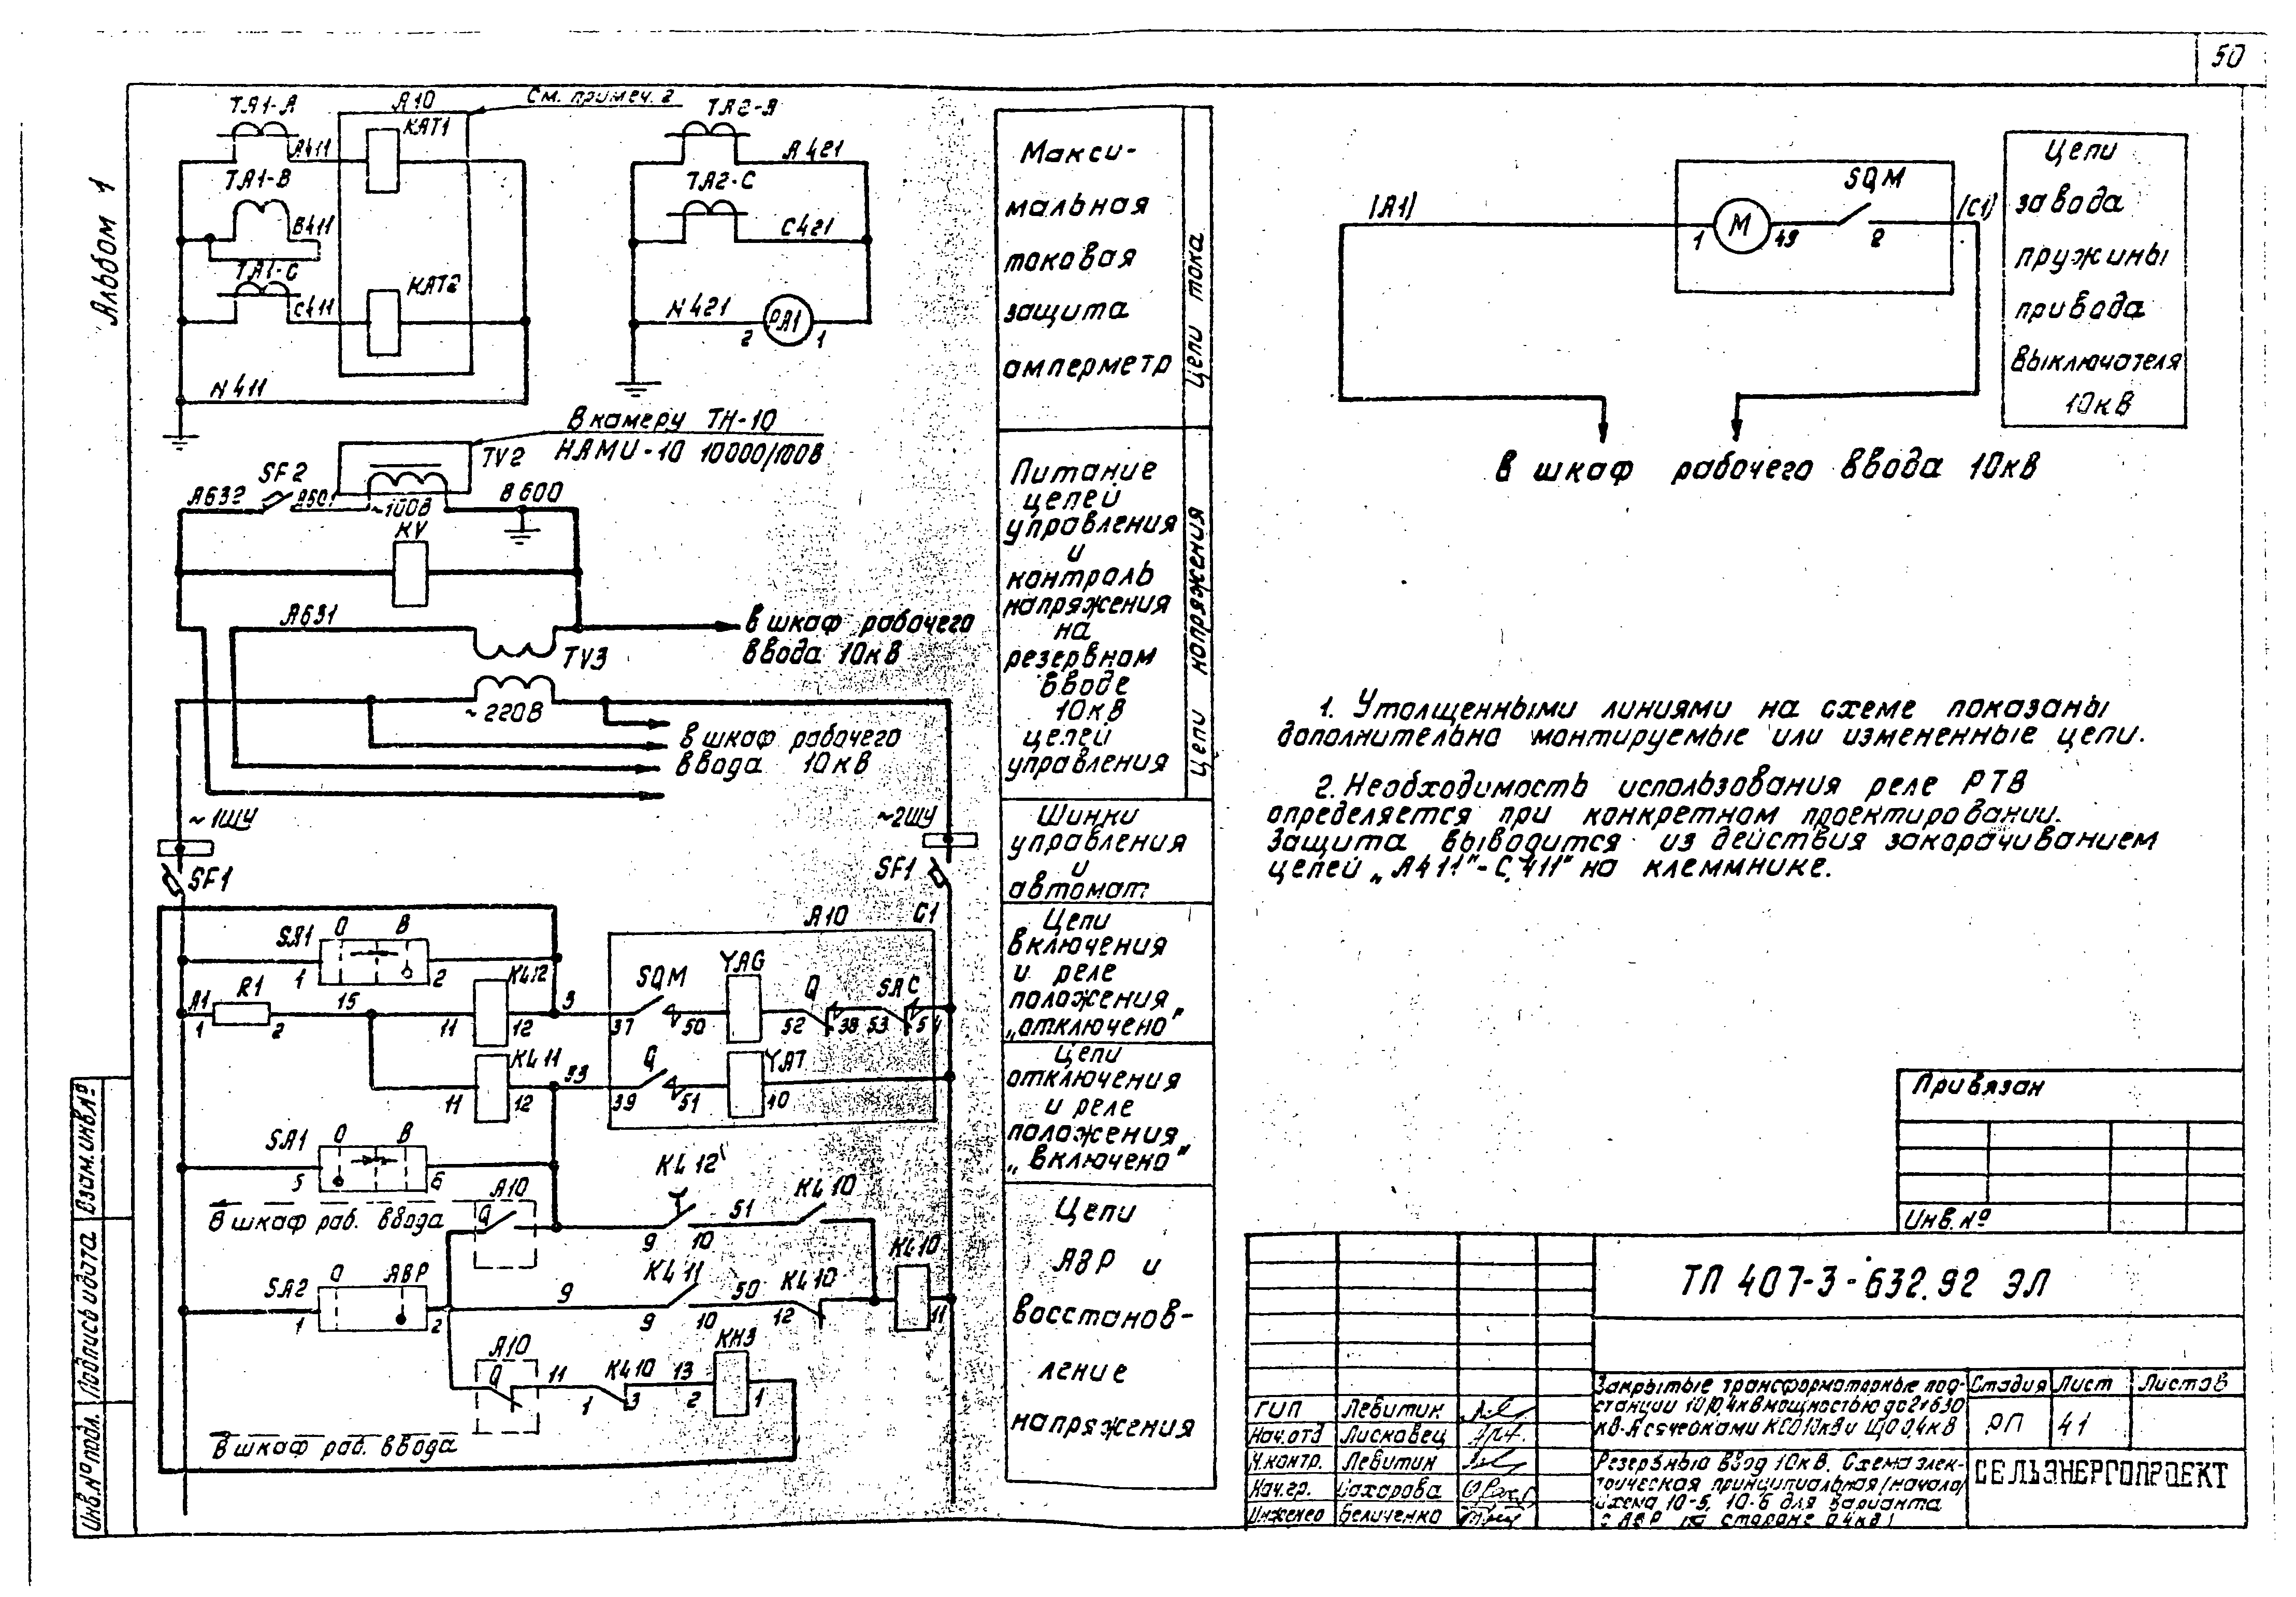 50
Альбом 1
ТА1-А
А10
См. примеч. 2
КАТ1
А411
ТА1-В
В411
ТА1-С
КАТ2
С411
N411
ТА2-А
А421
ТА2-С
С421
N421
РА1
2
1
Макси-
мальная
токовая
защита
амперметр
Цепи тока
В камеру ТН-10
НАМИ-10 10000/100В
TV2
SF2
А632
А601
~100В
В600
KV
А631
TV3
в шкаф рабочего
ввода 10кВ
~220В
в шкаф рабочего
ввода 10кВ
Питание
цепей
управления
и
контроль
напряжения
на
резервном
вводе
10кВ
цепей
управления
Цепи напряжения
~1ШУ
~2ШУ
SF1
SF1
Шинки
управления
и
автомат
С1
А10
SA1
О
В
1
2
KL12
A1
R1
1
2
15
11
12
3
SQM
YAG
Q
SAC
37
50
52
38
53
54
Цепи
включения
и реле
положения
„отключено"
KL11
11
12
33
Q
YAT
39
51
10
Цепи
отключения
и реле
положения
„включено"
SA1
О
В
5
6
В шкаф раб. ввода
А10
Q
KL12
9
10
51
KL10
SA2
О
АВР
1
2
9
KL11
9
10
50
KL10
12
KL10
11
А10
Q
11
KL10
1
3
13
КН3
2
1
В шкаф раб. ввода
Цепи
АВР и
восстанов-
ление
напряжения
(А1)
1
М
49
SQM
2
(С1)
Цепи
завода
пружины
привода
выключателя
10кВ
в шкаф рабочего ввода 10кВ
1. Утолщенными линиями на схеме показаны
дополнительно монтируемые или измененные цепи.
2. Необходимость использования реле РТВ
определяется при конкретном проектировании.
Защита выводится из действия закорачиванием
цепей „А411"-С411" на клеммнике.
Привязан
Инв.№
ТП 407-3-632.92 ЭЛ
Закрытые трансформаторные под-
станции 10/0,4кв мощностью до 2х630
кв·А с ячейками КСО 10кВ и ЩО 0,4кВ
Стадия
Лист
Листов
РП
41
Резервный ввод 10кВ. Схема элек-
трическая принципиальная (начало)
схема 10-5, 10-6 для варианта
с АВР на стороне 0,4кВ)
СЕЛЬЭНЕРГОПРОЕКТ
ГИП Левитин
Нач.отд Лисковец
Н.контр. Левитин
Нач.гр. Сахарова
Инженер Беличенко
Инв.№ подл.
Подпись и дата
Взам.инв.№